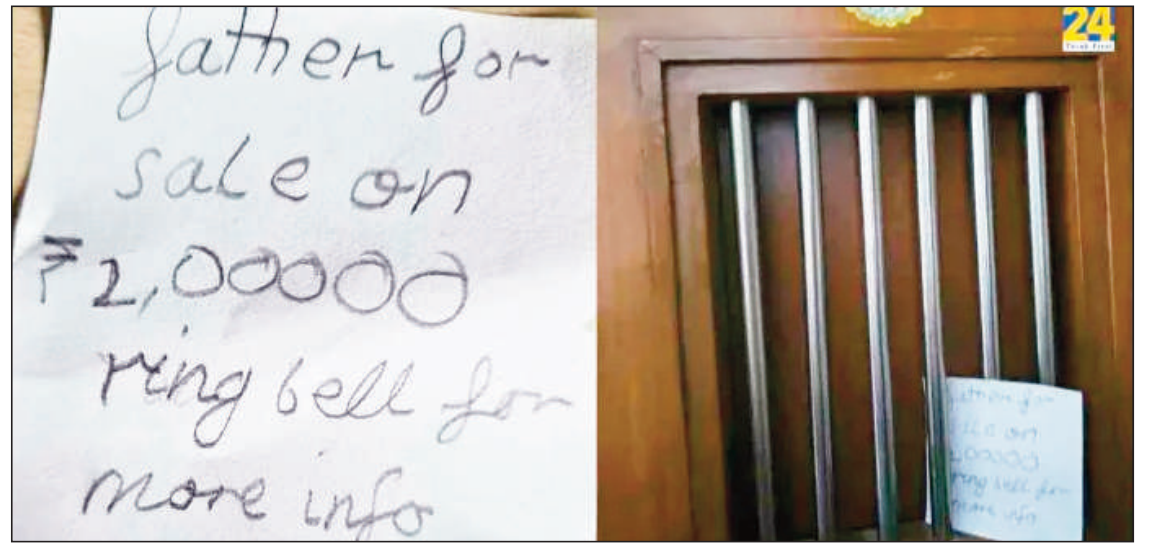 father for
sale on
₹2,00000
ring bell for
more info
24
Think First
father for
sale on
200000
ring bell for
more info